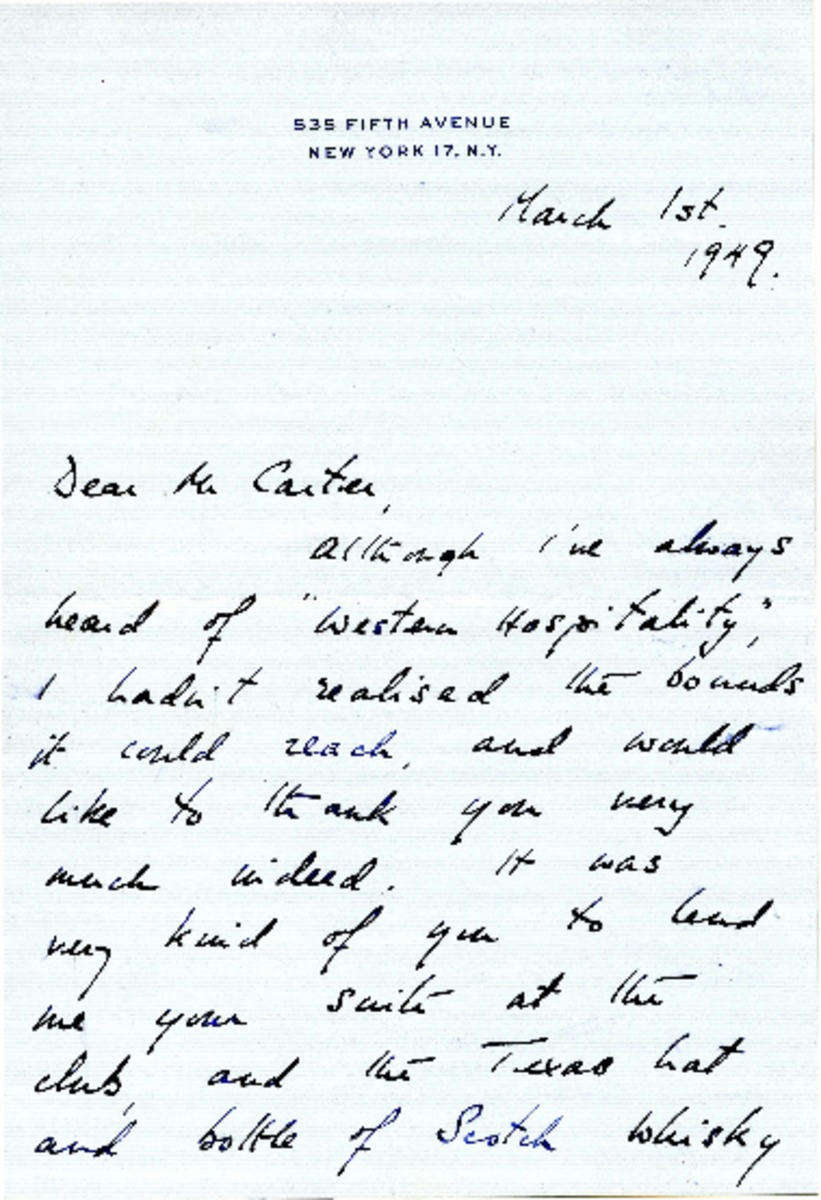 535 FIFTH AVENUE
NEW YORK 17, N.Y.
March 1st.
1949.
Dear Mr Carter,
Although I've always
heard of "Western Hospitality",
I hadn't realised the bounds
it could reach, and would
like to thank you very
much indeed. It was
very kind of you to lend
me your suite at the
club, and the Texas hat
and bottle of Scotch whisky